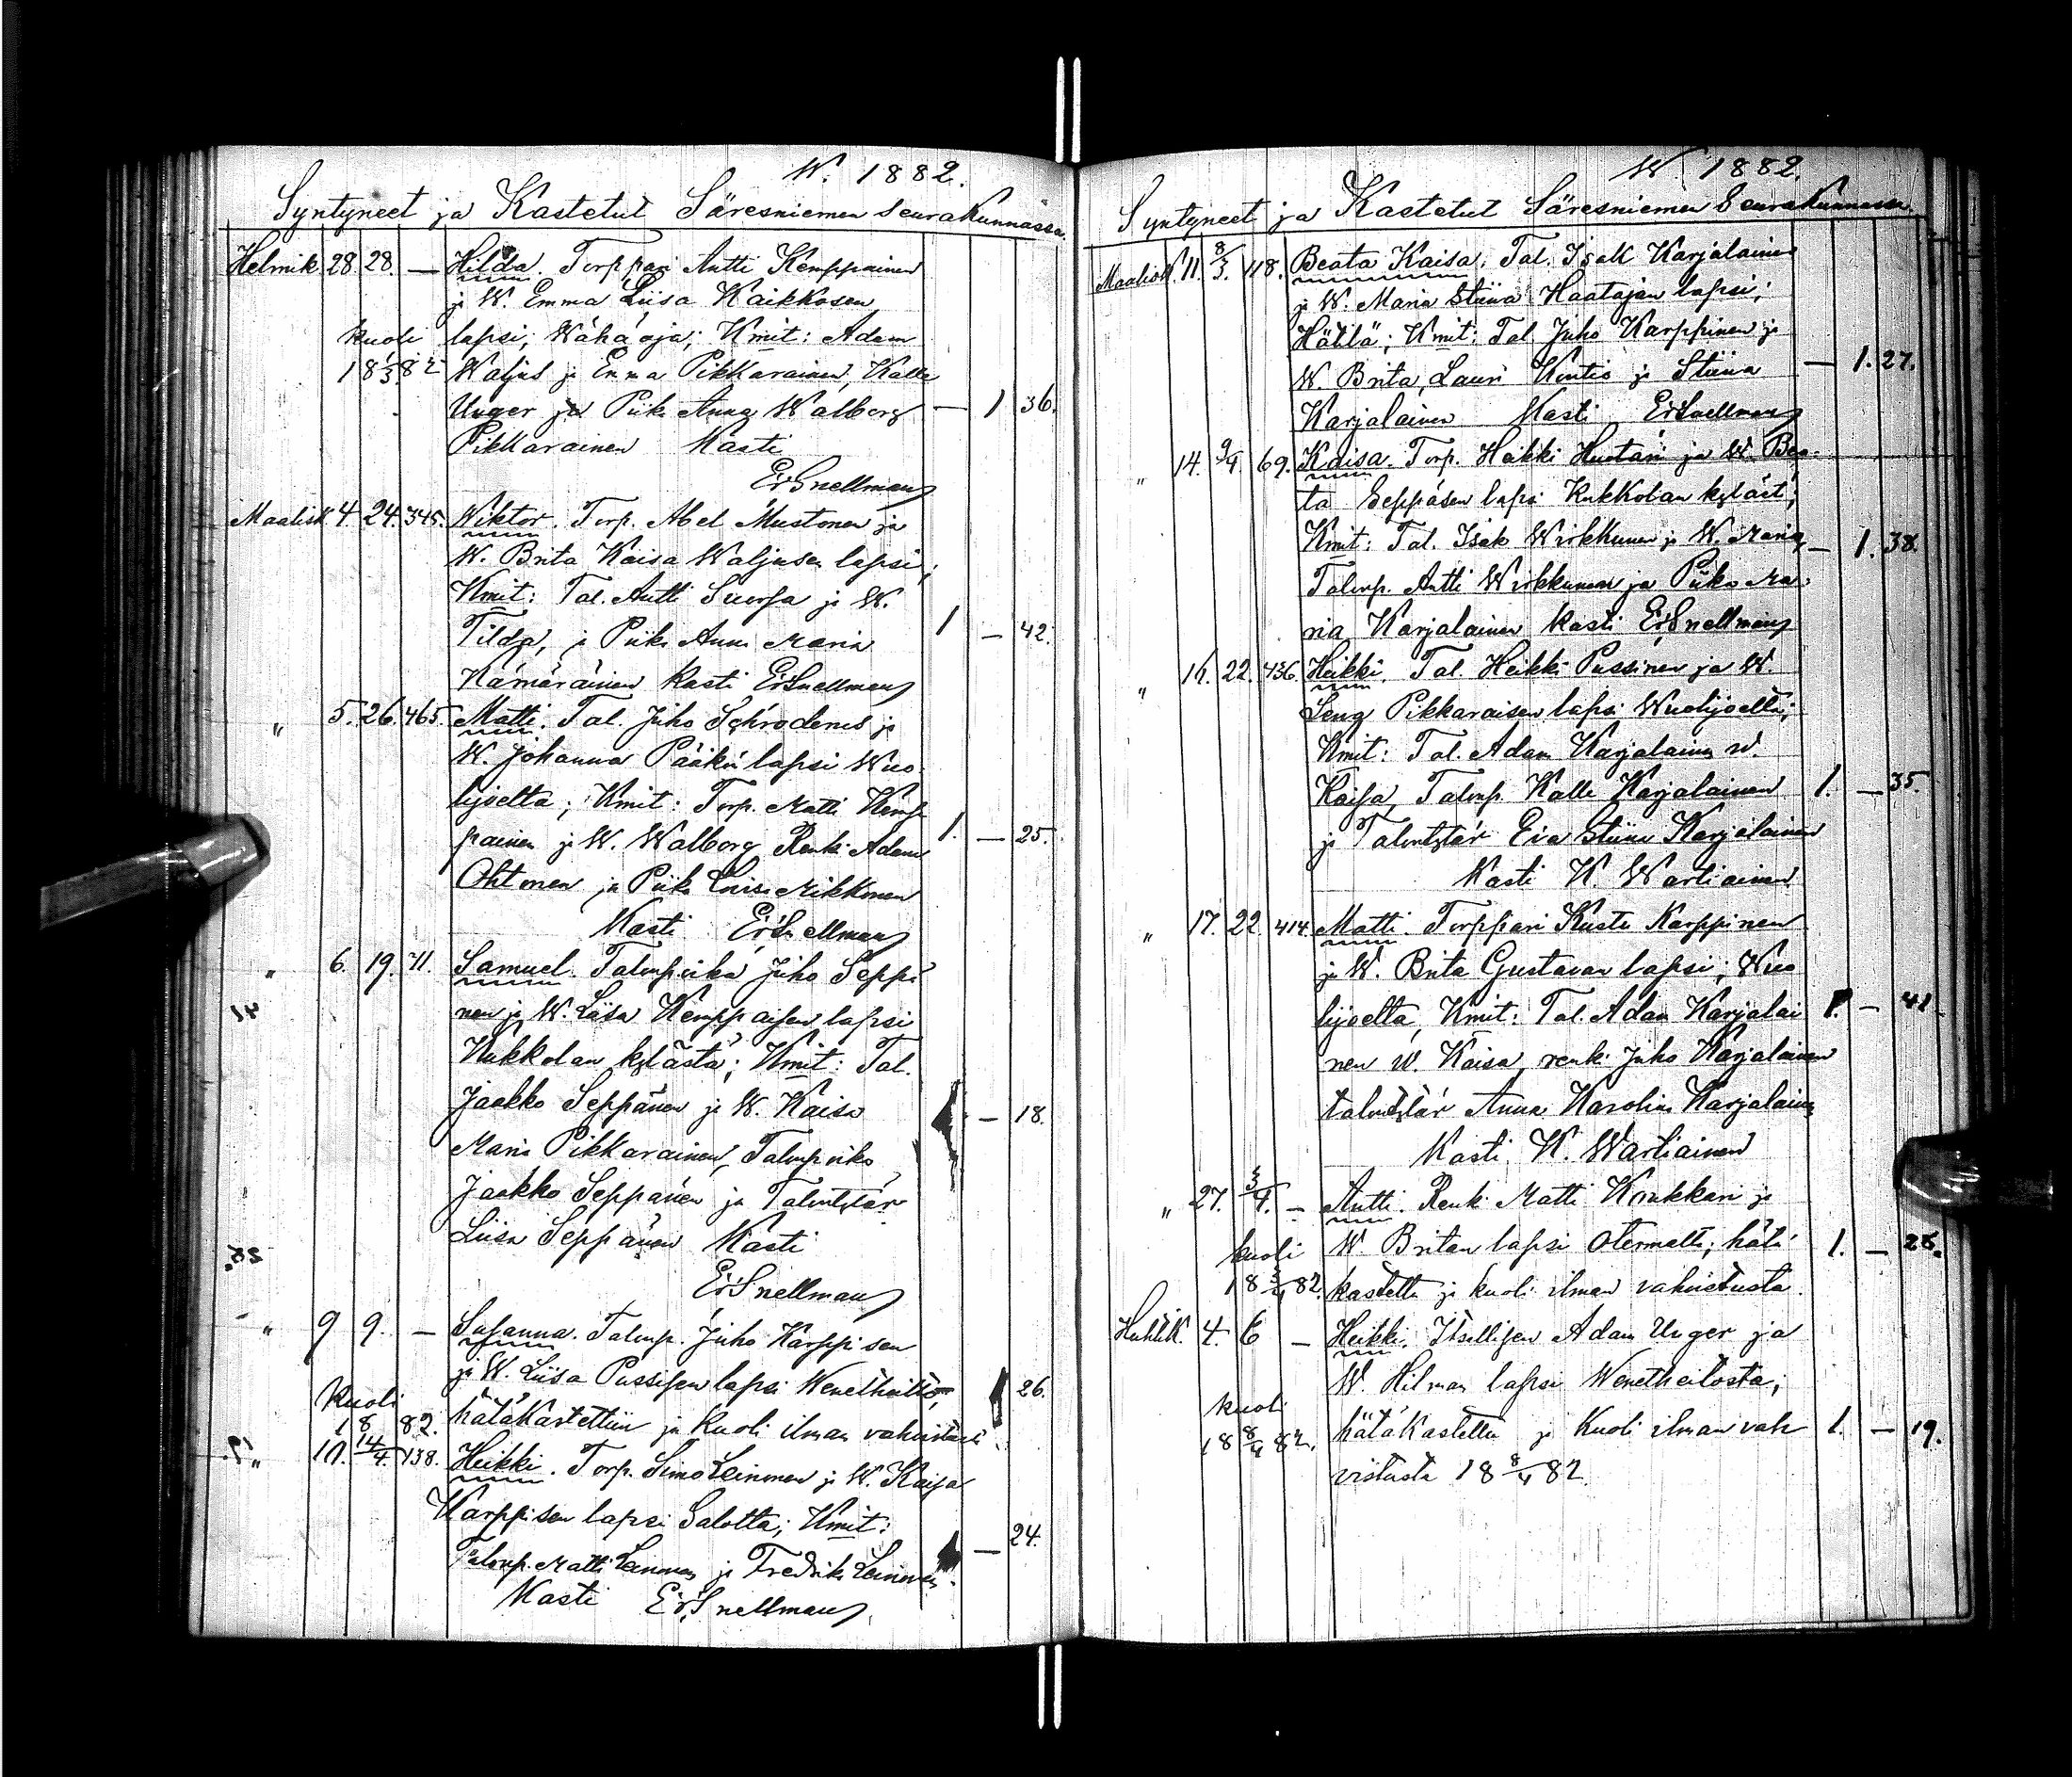 W. 1882.
Syntyneet ja Kastetut Säresniemen seurakunnassa.
Helmik. 28 28. — Hilda. Torppari Antti Kemppainen
ja W. Emma Liisa Kaikkosen
kuoli lapsi; Wähäoja; Kmit: Adam
18 1/3 82 Waljus ja Emma Pikkarainen, Kalle
Unger ja Piika Anna Walborg — 1 36.
Pikkarainen Kasti
Er Snellman
Maalisk. 4. 24. 345. Wiktor. Torp. Abel Mustonen ja
W. Brita Kaisa Waljusen lapsi;
Kmit: Tal. Antti Suorsa ja W.
Tilda, ja Piika Anna Maria 1 — 42.
Kämäräinen Kasti Er Snellman
" 5. 26. 465. Matti. Tal. Juho Schroderus ja
W. Johanna Pääkin lapsi Wuo
lijoelta; Kmit: Torp. Matti Kemp
painen ja W. Walborg Renki Adam 1. — 25.
Ohtonen ja Piika Mikkonen
Kasti Er Snellman
" 6. 19. 71. Samuel. Talonpoika Juho Seppä
nen ja W. Liisa Kemppaisen lapsi
Kukkolan kylästä; Kmit: Tal.
Jaakko Seppänen ja W. Kaisa — 18.
Maria Pikkarainen, Talonpoika
Jaakko Seppänen ja Talontytär
Liisa Seppänen Kasti
Er Snellman
" 9 9. — Susanna. Talonp. Juho Karppisen
ja W. Liisa Pussisen lapsi Wenetheitto, 1 26.
kuoli
18 82. hätäkastettiin ja kuoli ilman vahvistusta
" 11. 14/4. 138. Heikki. Torp. Simo Leinonen ja W. Kaisa
Karppisen lapsi Salolta; Kmit:
Talonp. Matti Leinonen ja Fredrika Leinonen. — 24.
Kasti Er Snellman
W. 1882.
Syntyneet ja Kastetut Säresniemen Seurakunnassa.
Maalisk. 11. 8/3. 118. Beata Kaisa. Tal. Isak Karjalainen
ja W. Maria Stiina Haatajan lapsi;
Hätilä; Kmit: Tal. Juho Karppinen ja
W. Brita, Lauri Kontio ja Stiina — 1. 27.
Karjalainen Kasti Er Snellman
" 14. 9/4. 69. Kaisa. Torp. Heikki Huotari ja W. Bea-
ta Seppäsen lapsi Kukkolan kyläst;
Kmit: Tal. Isak Wirkkunen ja W. Maria, — 1. 38.
Talonp. Antti Wirkkunen ja Piika Ma-
ria Karjalainen Kasti Er Snellman
" 16. 22. 436. Heikki. Tal. Heikki Pussinen ja W.
Leena Pikkaraisen lapsi Wuolijoelta;
Kmit: Tal. Adam Karjalainen w.
Kaisa, Talonp. Kalle Karjalainen 1. — 35.
ja Talontytär Eva Stiina Karjalainen
Kasti K. Wartiainen
" 17. 22. 414. Matti. Torppari Kusta Karppinen
ja W. Brita Gustavan lapsi; Wuo
lijoelta, Kmit: Tal. Adam Karjalai 1. — 41.
nen w. Kaisa, renki Juho Karjalainen
talontytär Anna Karolina Karjalainen
Kasti K. Wartiainen
" 27. 3/4. — Antti. Renki Matti Koukkari ja
kuoli W. Britan lapsi Otermalta; hätä 1. — 28.
18 3/4 82. kastettu ja kuoli ilman vahvistusta.
Huhtik. 4. 6 — Heikki. Itsellisen Adam Unger ja
W. Hilman lapsi Wenetheitosta;
kuoli
18 8/4 82. hätäkastettu ja kuoli ilman vah 1. — 19.
vistusta 18 8/4 82.